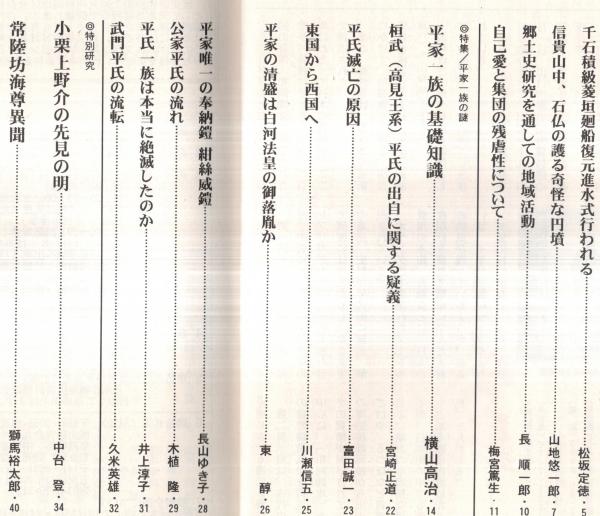 千石積級菱垣廻船復元進水式行われる…………松坂定徳・5
信貴山中、石仏の護る奇怪な円墳…………山地悠一郎・7
郷土史研究を通しての地域活動…………長 順一郎・10
自己愛と集団の残虐性について…………梅宮篤生・11
◎特集／平家一族の謎
平家一族の基礎知識…………横山高治・14
桓武（高見王系）平氏の出自に関する疑義…………宮崎正道・22
平氏滅亡の原因…………富田誠一・23
東国から西国へ…………川瀬信五・25
平家の清盛は白河法皇の御落胤か…………東 醇・26
平家唯一の奉納鎧 紺絲威鎧…………長山ゆき子・28
公家平氏の流れ…………木植 隆・29
平氏一族は本当に絶滅したのか…………井上淳子・31
武門平氏の流転…………久米英雄・32
◎特別研究
小栗上野介の先見の明…………中台 登・34
常陸坊海尊異聞…………獅馬裕太郎・40